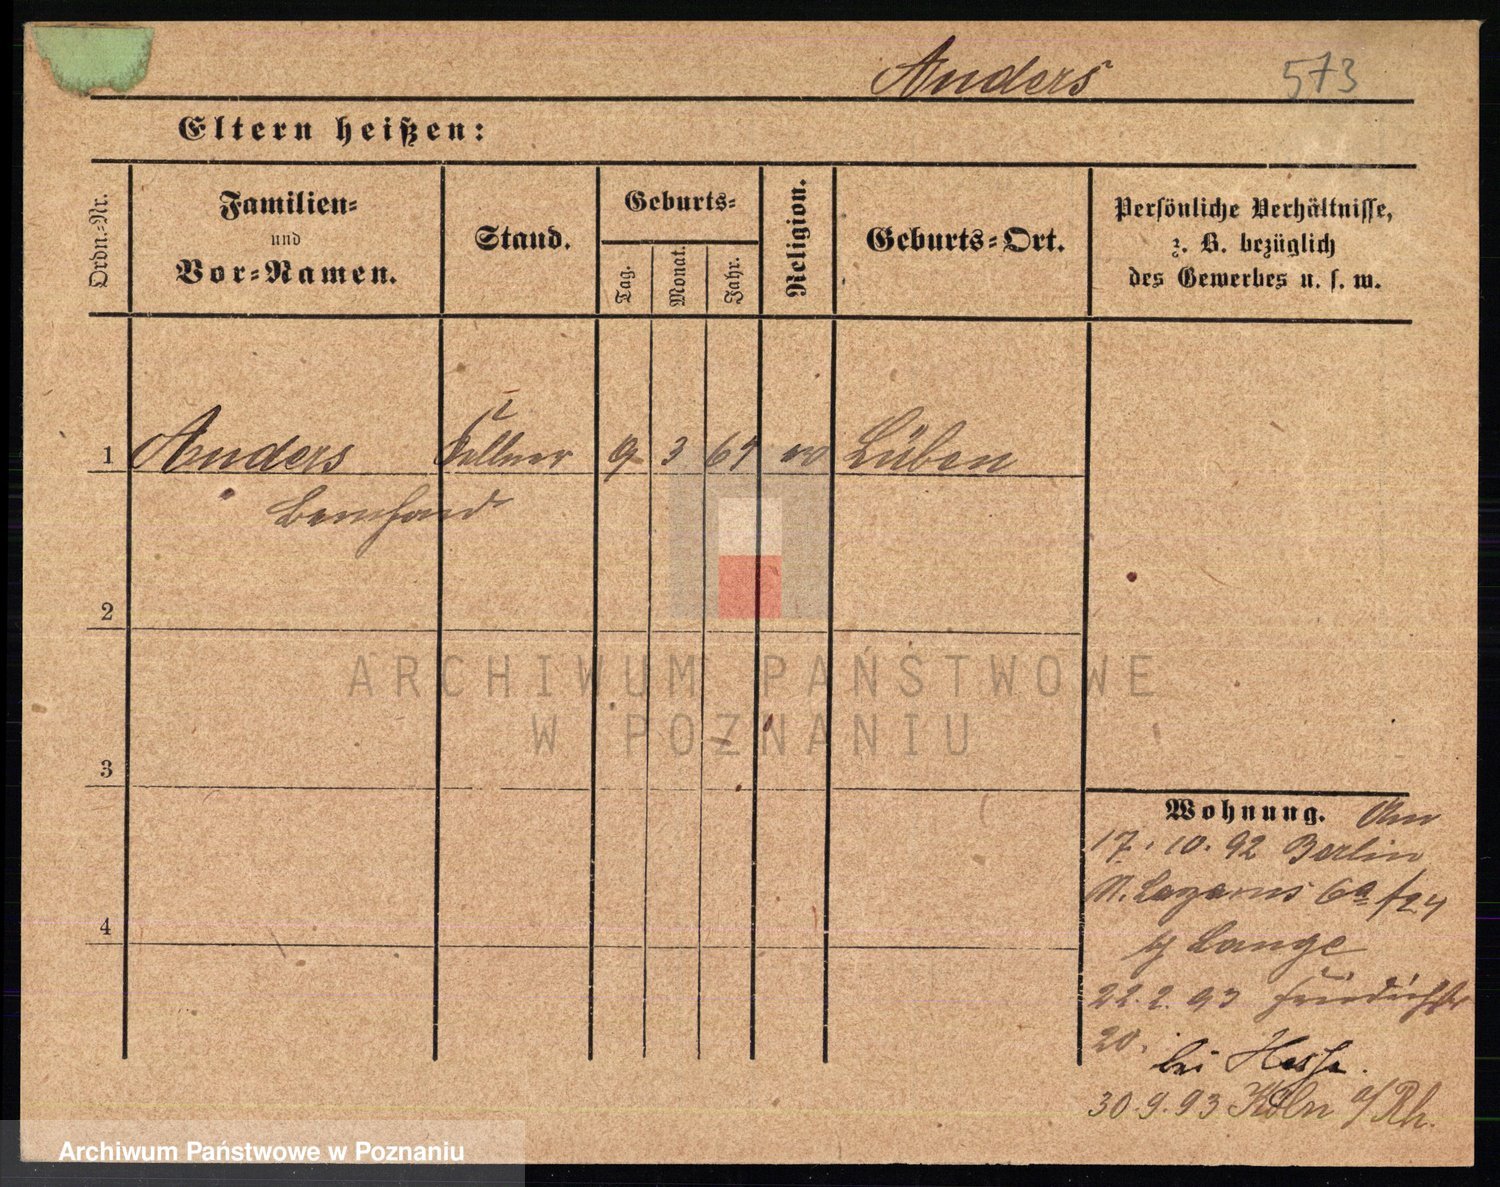 Anders 573
Eltern heißen:
Ordn.-Nr.
Familien-
und
Vor-Namen.
Stand.
Geburts-
Tag.
Monat.
Jahr.
Religion.
Geburts-Ort.
Persönliche Verhältnisse,
z. B. bezüglich
des Gewerbes u. s. w.
1 Anders Kellner 9 3 67 ev Lüben
Bernhard
2
3
4
Wohnung. Am
17. 10. 92 Berlin
St. Lazarus 6a
Lange
22. 2. 93 Friedrichstr
20.
bei Hesse.
30. 9. 93 Köln a/Rh.
ARCHIWUM PAŃSTWOWE
W POZNANIU
Archiwum Państwowe w Poznaniu